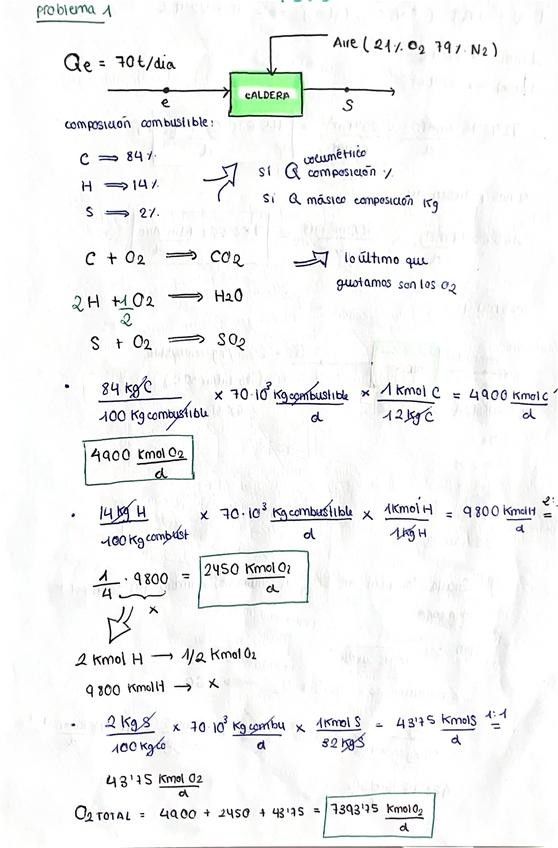 problema 1
Aire (21% O2 79% N2)
Qe = 70t/dia
CALDERA
e
S
composición combustible:
C ⟹ 84%
H ⟹ 14%
S ⟹ 2%
Si Q volumétrico composición %
Si Q másico composición Kg
C + O2 ⟹ CO2
lo último que
gustamos son los O2
2H + 1/2 O2 ⟹ H2O
S + O2 ⟹ SO2
• 84 KgC / 100 Kg combustible × 70·10³ Kg combustible / d × 1 Kmol C / 12 KgC = 4900 Kmol C / d
4900 Kmol O2 / d
• 14 Kg H / 100 Kg combust × 70·10³ Kg combustible / d × 1 Kmol H / 1 Kg H = 9800 Kmol H / d =
1/4 · 9800 = 2450 Kmol O2 / d
x
2 Kmol H → 1/2 Kmol O2
9800 Kmol H → x
• 2 Kg S / 100 Kg co × 70·10³ Kg combu / d × 1 Kmol S / 32 Kg S = 43'75 Kmol S / d 1:1 =
43'75 Kmol O2 / d
O2 TOTAL = 4900 + 2450 + 43'75 = 7393'75 Kmol O2 / d